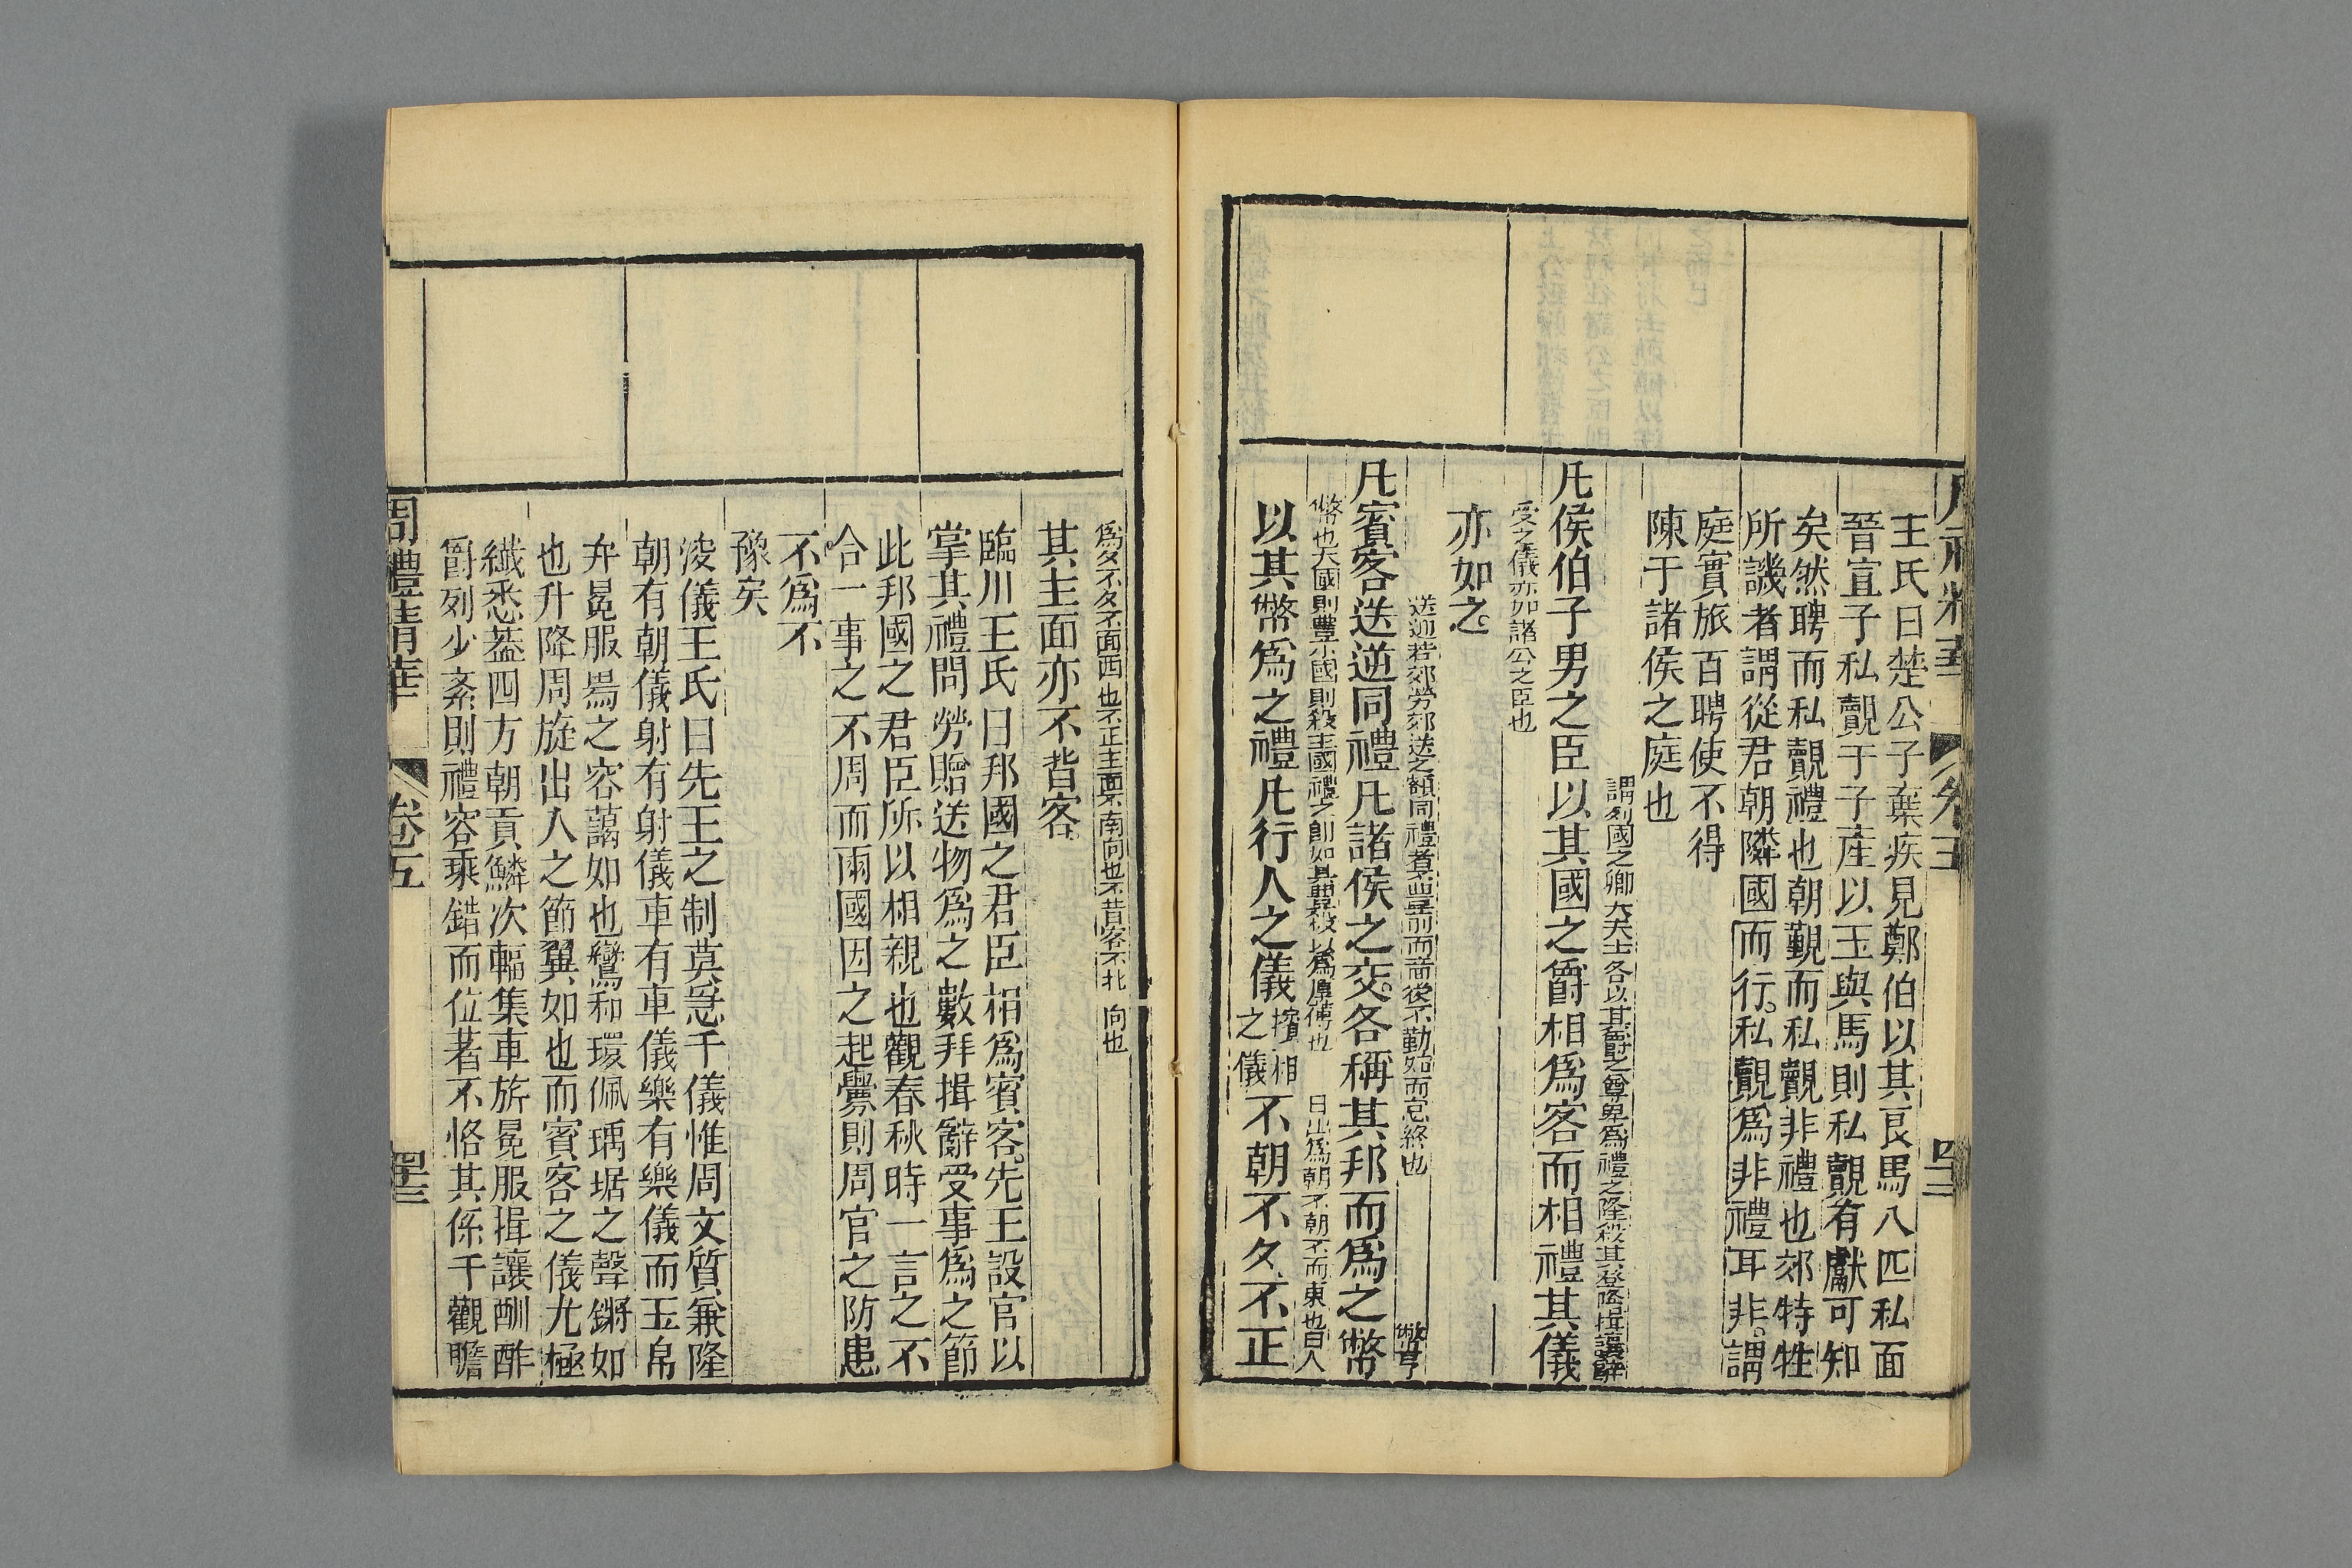 王氏曰楚公子棄疾見鄭伯以其良馬八匹私面
晉宣子私覿于子產以玉與馬則私覿有獻可知
矣然聘而私覿禮也朝覲而私覿非禮也郊特牲
所譏者謂從君朝隣國而行私覿爲非禮耳非謂
庭實旅百聘使不得
陳于諸侯之庭也
謂列國之卿大夫士各以其爵之尊卑爲禮之隆殺其登降揖讓辭
凡侯伯子男之臣以其國之爵相爲客而相禮其儀
受之儀亦如諸公之臣也
亦如之
送迎若郊勞郊送之類同禮者豈前而啬後不勤始而怠終也
幣享
凡賓客送逆同禮凡諸侯之交各稱其邦而爲之幣
幣也大國則豐小國則殺主國禮之卽如其豐殺以爲厚薄也
日出爲朝不朝不而東也日入
以其幣爲之禮凡行人之儀擯相之儀不朝不夕不正
爲夕不夕不面西也不正主面不南向也不背客不北向也
其主面亦不背客
臨川王氏曰邦國之君臣相爲賓客先王設官以
掌其禮問勞贈送物爲之數拜揖辭受事爲之節
此邦國之君臣所以相親也觀春秋時一言之不
合一事之不周而兩國因之起釁則周官之防患
不爲不
豫矣
浚儀王氏曰先王之制莫急于儀惟周文質兼隆
朝有朝儀射有射儀車有車儀樂有樂儀而玉帛
弁冕服舄之容藹如也鸞和環佩瑀琚之聲鏘如
也升降周旋出入之節翼如也而賓客之儀尤極
纖悉蓋四方朝貢鱗次輻集車旂冕服揖讓酬酢
爵列少紊則禮容乖錯而位著不恪其係于觀瞻
周禮精華 卷五 四十三